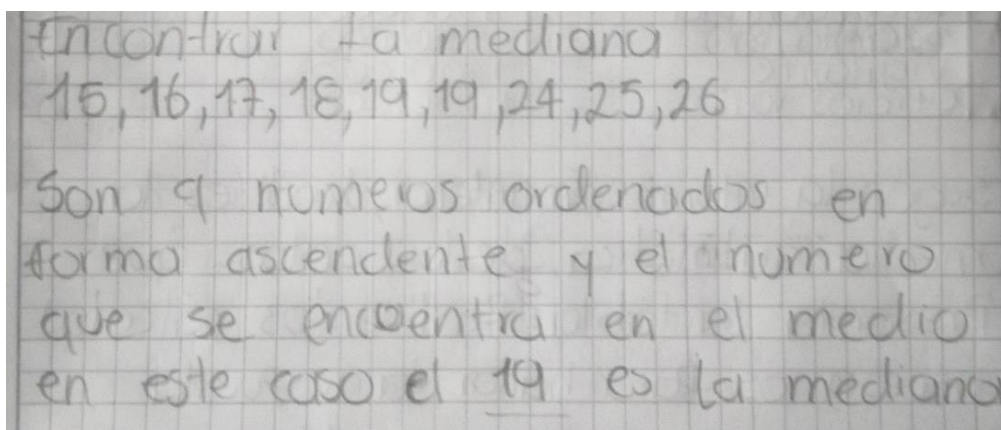 Encontrar la mediana
15, 16, 17, 18, 19, 19, 24, 25, 26
Son 9 numeros ordenados en
forma ascendente y el numero
que se encuentra en el medio
en este caso el 19 es la mediana